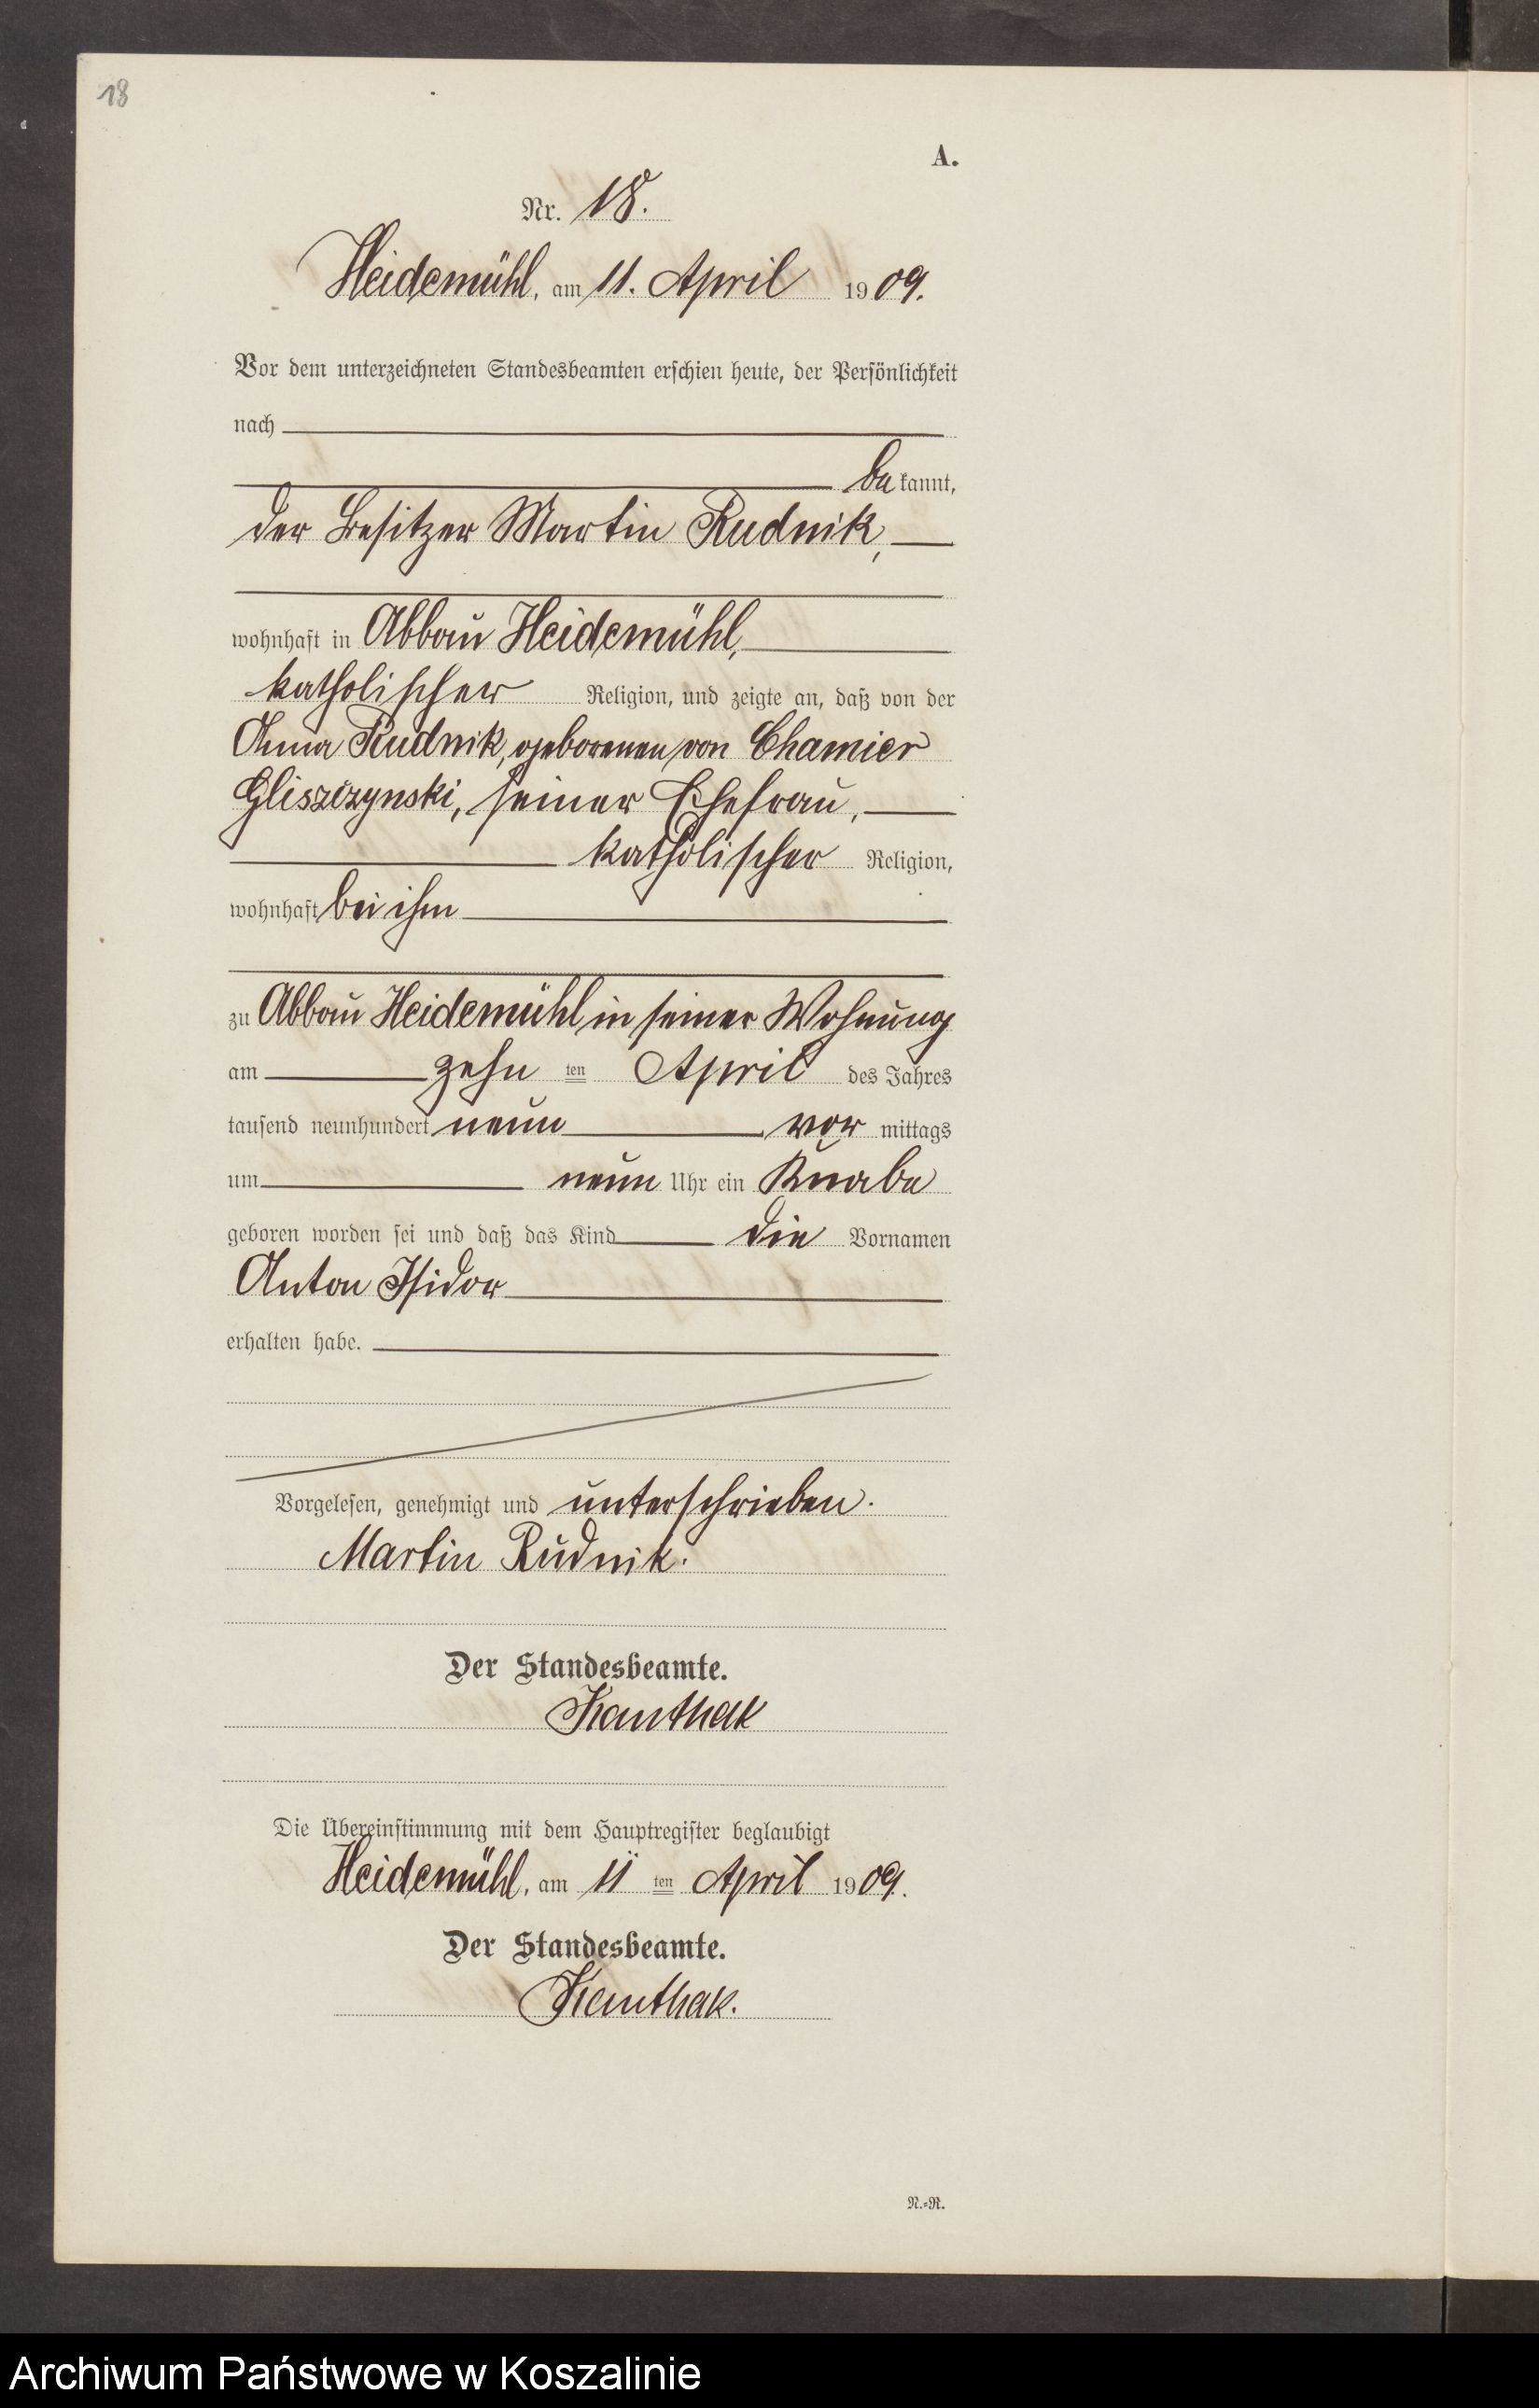 18
A.
Nr. 18.
Heidemühl, am 11. April 1909.
Vor dem unterzeichneten Standesbeamten erschien heute, der Persönlichkeit
nach
bekannt,
der Besitzer Martin Rudnik,
wohnhaft in Abbau Heidemühl,
katholischer Religion, und zeigte an, daß von der
Anna Rudnik, geborenen von Chamier
Gliszczynski, seiner Ehefrau,
katholischer Religion,
wohnhaft bei ihm
zu Abbau Heidemühl in seiner Wohnung
am zehn ten April des Jahres
tausend neunhundert neun vor mittags
um neun Uhr ein Knabe
geboren worden sei und daß das Kind die Vornamen
Anton Isidor
erhalten habe.
Vorgelesen, genehmigt und unterschrieben.
Martin Rudnik.
Der Standesbeamte.
Kanthak
Die Übereinstimmung mit dem Hauptregister beglaubigt
Heidemühl, am 11 ten April 1909.
Der Standesbeamte.
Kanthak.
N.=R.
Archiwum Państwowe w Koszalinie